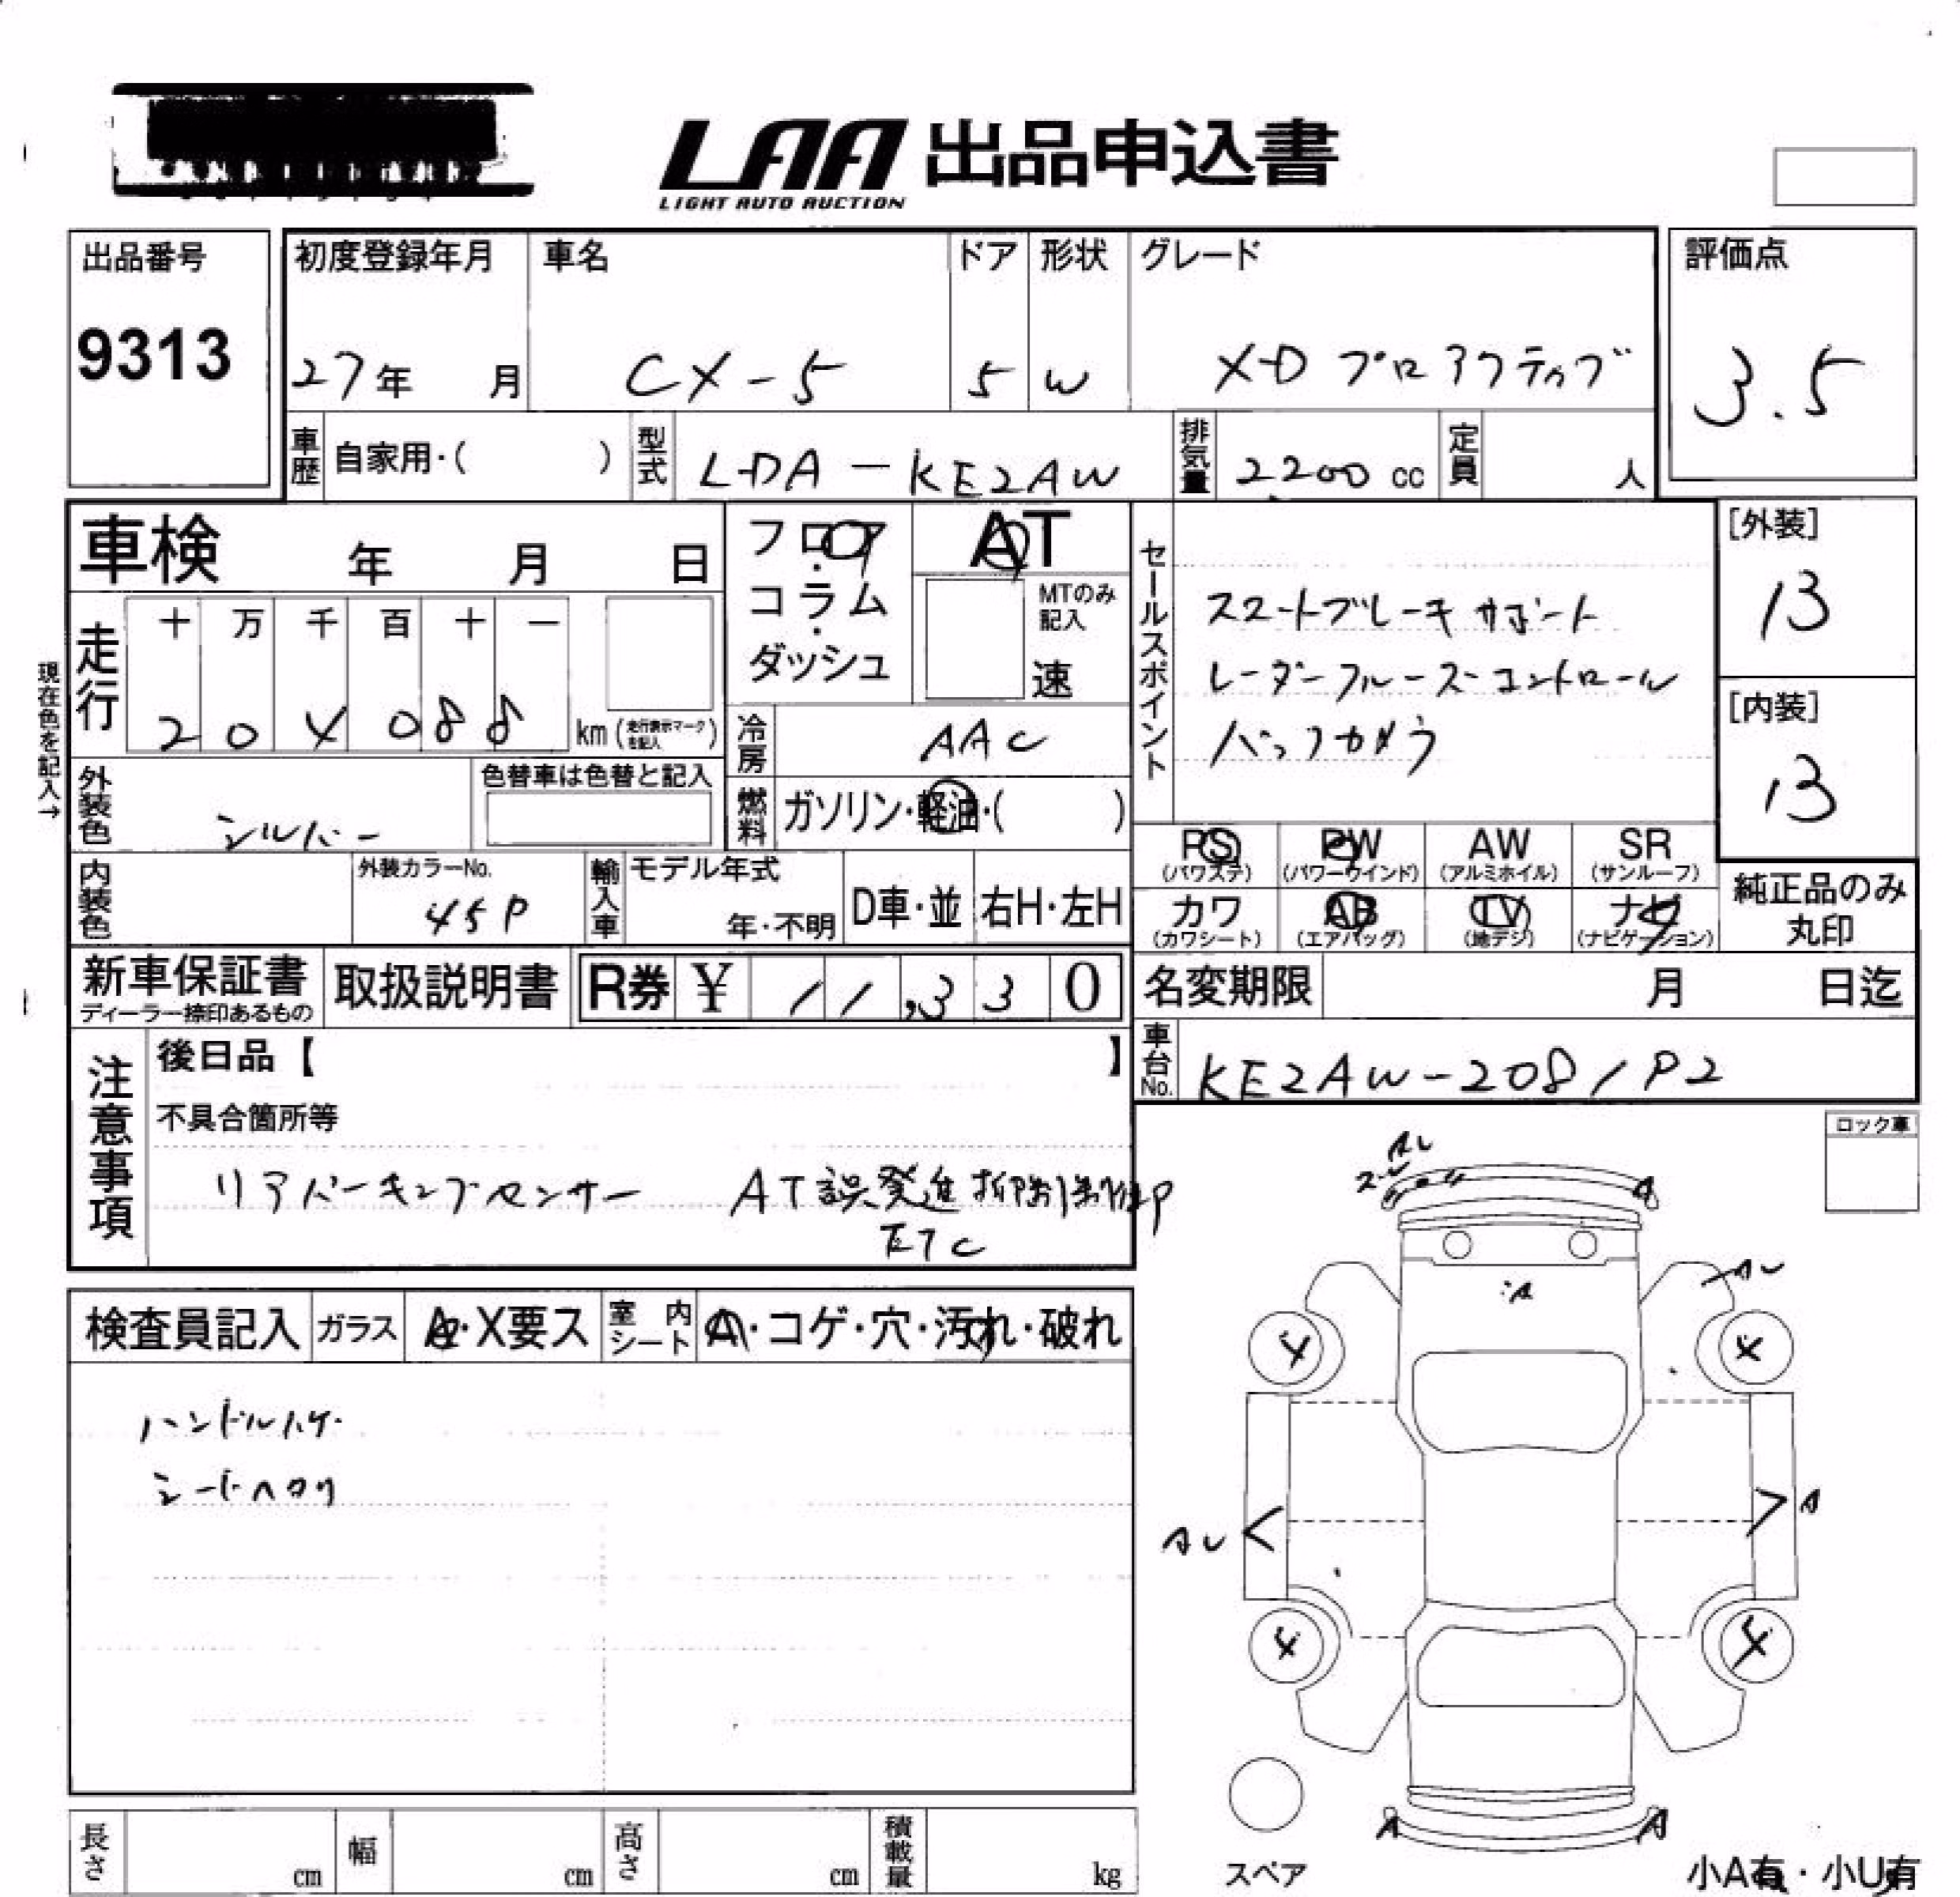 LAA 出品申込書
LIGHT AUTO AUCTION
出品番号
9313
初度登録年月
27年 月
車名
CX-5
ドア
5
形状
W
グレード
XD プロアクティブ
評価点
3.5
車歴 自家用・( )
型式 LDA-KE2AW
排気量 2200 cc
定員 人
車検 年 月 日
フロア・コラム・ダッシュ
AT
MTのみ記入
速
セールスポイント
スマートブレーキサポート
レーダークルーズコントロール
バックカメラ
[外装]
13
[内装]
13
現在色を記入→
走行
十 万 千 百 十 一
088
km(走行表示マークを記入)
冷房 AAC
燃料 ガソリン・軽油・( )
外装色 シルバー
色替車は色替と記入
内装色
外装カラーNo.
45P
輸入車
モデル年式
年・不明
D車・並
右H・左H
PS (パワステ)
PW (パワーウインド)
AW (アルミホイル)
SR (サンルーフ)
カワ (カワシート)
AB (エアバッグ)
TV (地デジ)
ナビ (ナビゲーション)
純正品のみ
丸印
新車保証書
ディーラー捺印あるもの
取扱説明書
R券 ¥ 11,330
名変期限 月 日迄
車台No. KE2AW-208192
注意事項
後日品【 】
不具合箇所等
リアパーキングセンサー AT誤発進抑制制御
ETC
検査員記入
ガラス A・X要ス
室内シート A・コゲ・穴・汚れ・破れ
ハンドルハゲ
シートヘタリ
ロック車
AU
A
A
AU
4
4
A
AU
4
4
A
A
スペア
小A有・小U有
長さ cm
幅 cm
高さ cm
積載量 kg